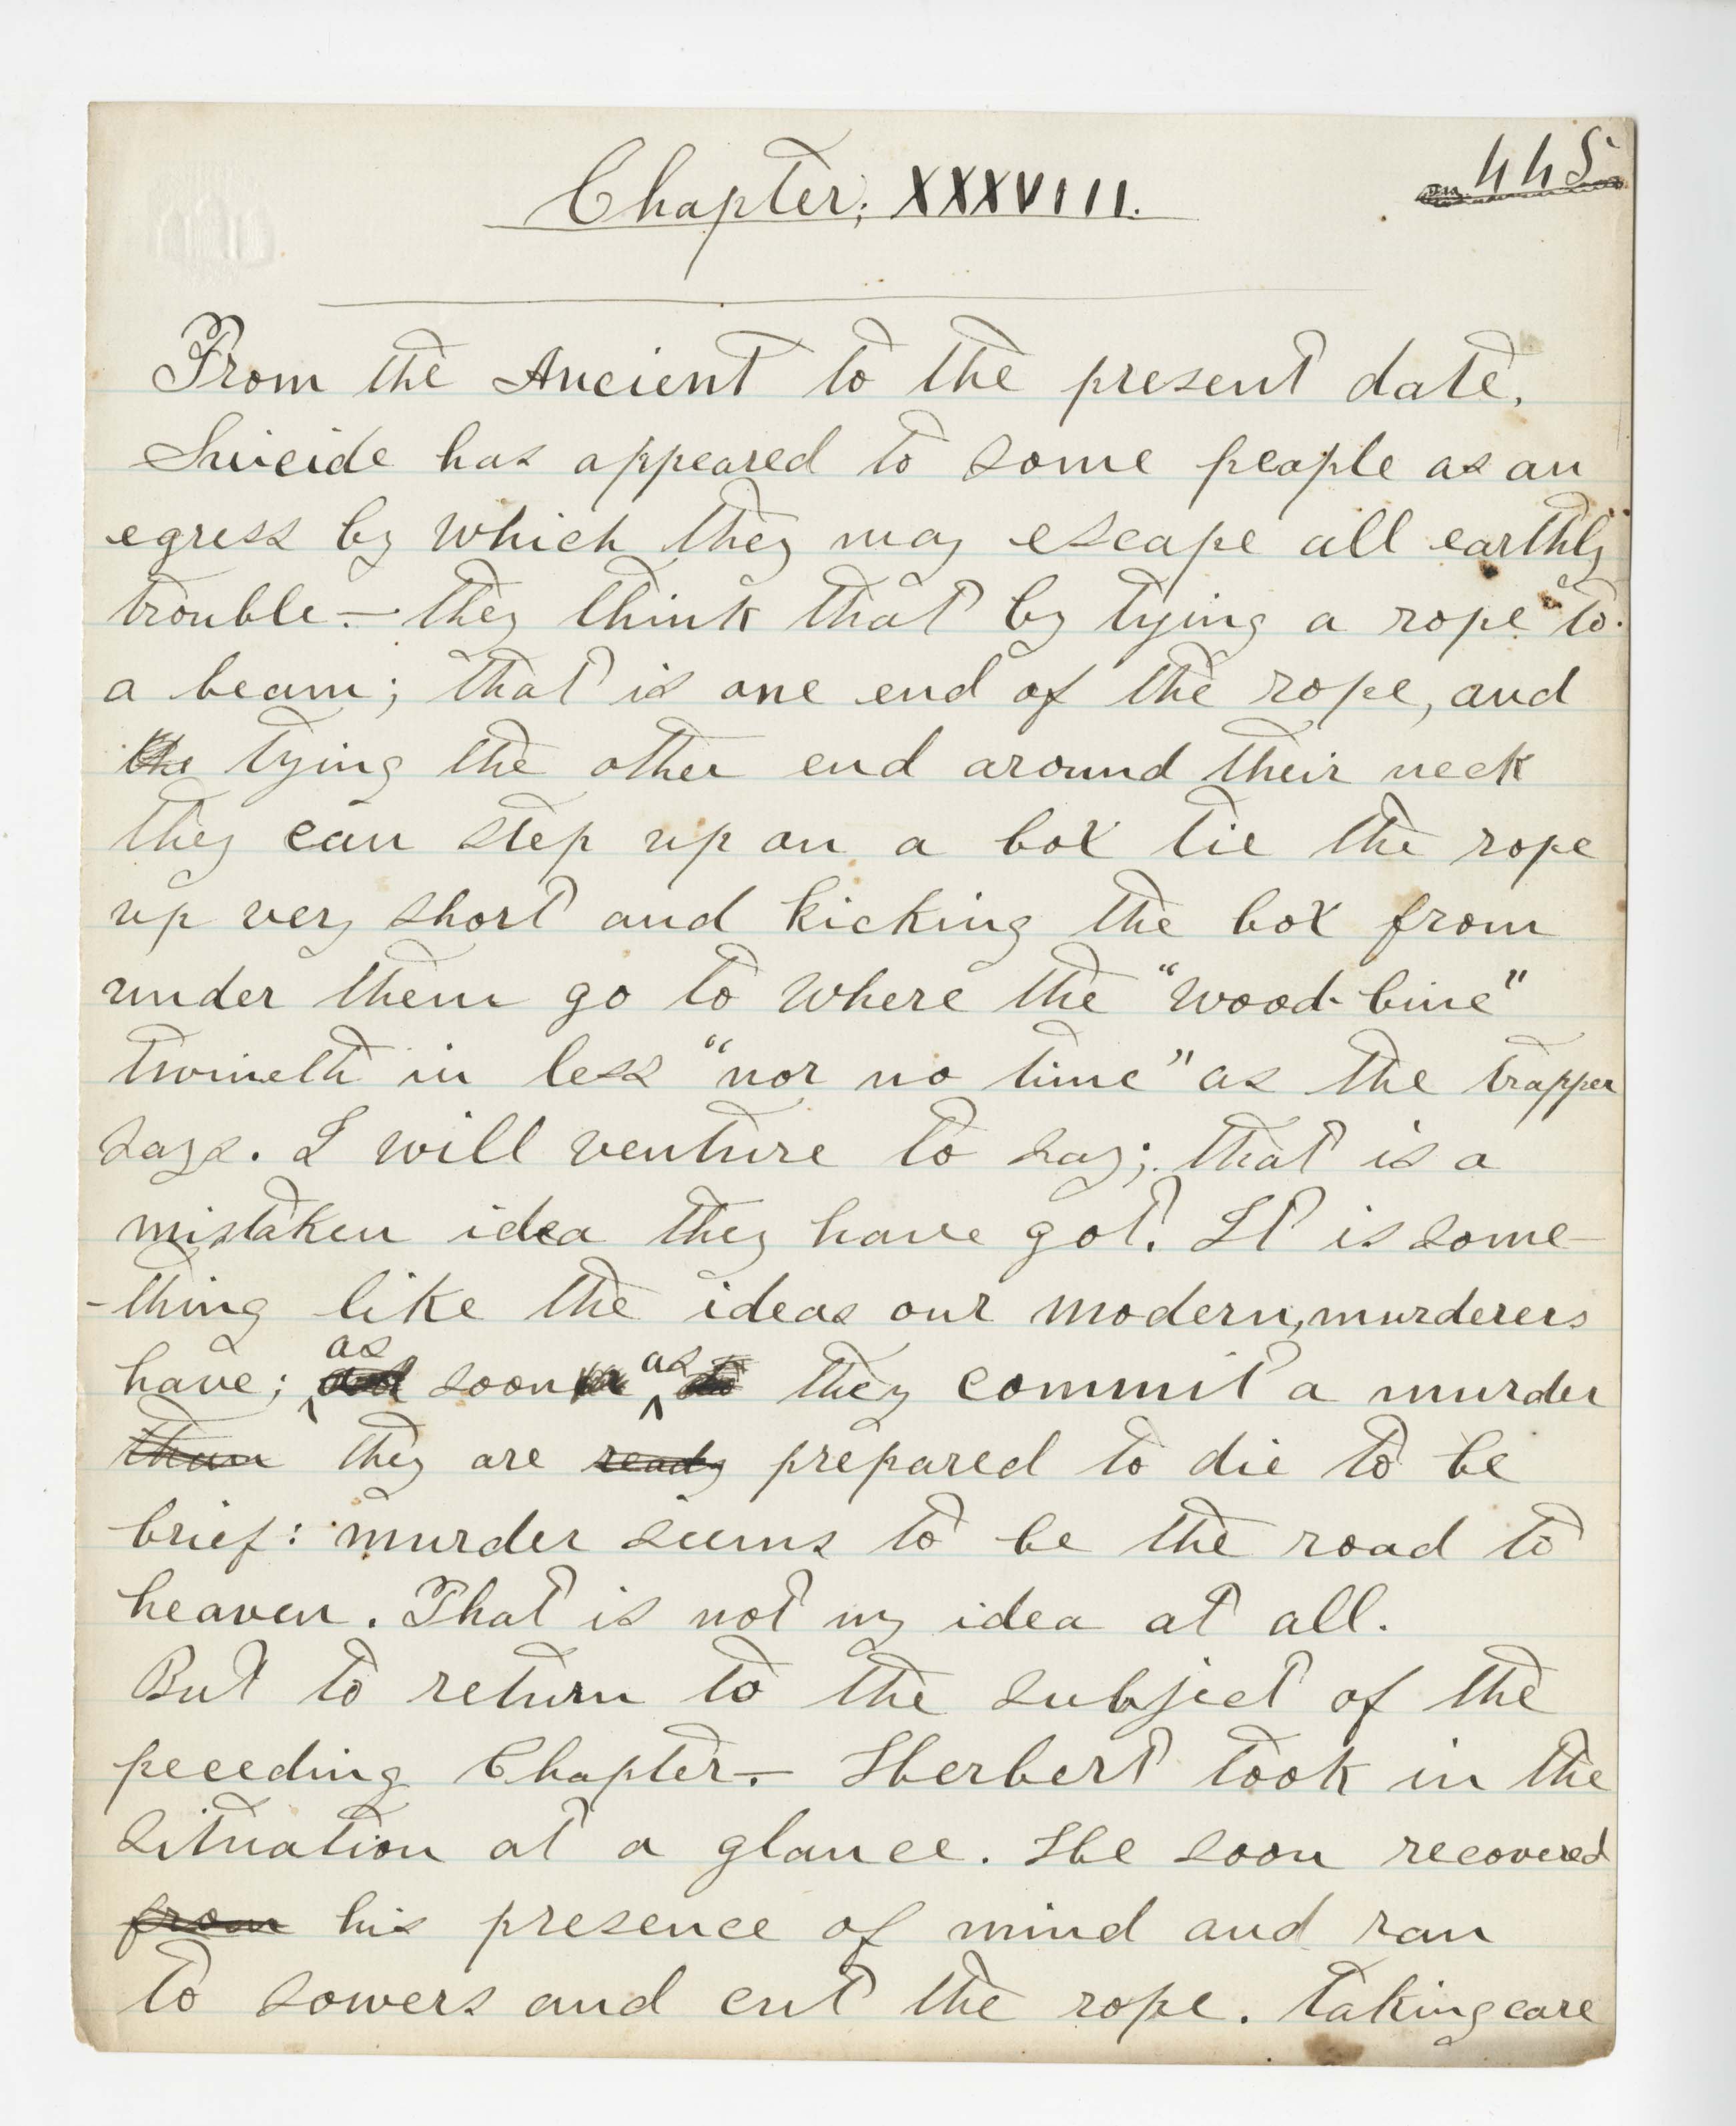 445
Chapter; XXXVIII.
From the Ancient to the present date,
Suicide has appeared to some people as an
egress by which they may escape all earthly
trouble.— they think that by tying a rope to
a beam; that is one end of the rope, and
the tying the other end around their neck
they can step up on a box tie the rope
up very short and kicking the box from
under them go to where the "wood-bine"
twineth in less "nor no time" as the trapper
says. I will venture to say; that is a
mistaken idea they have got. It is some-
-thing like the ideas our modern, murderers
have; as soon as they commit a murder
than they are ready prepared to die to be
brief: murder seems to be the road to
heaven. That is not my idea at all.
But to return to the subject of the
peceding Chapter.— Herbert took in the
situation at a glance. He soon recovered
from his presence of mind and ran
to sowers and cut the rope. taking care